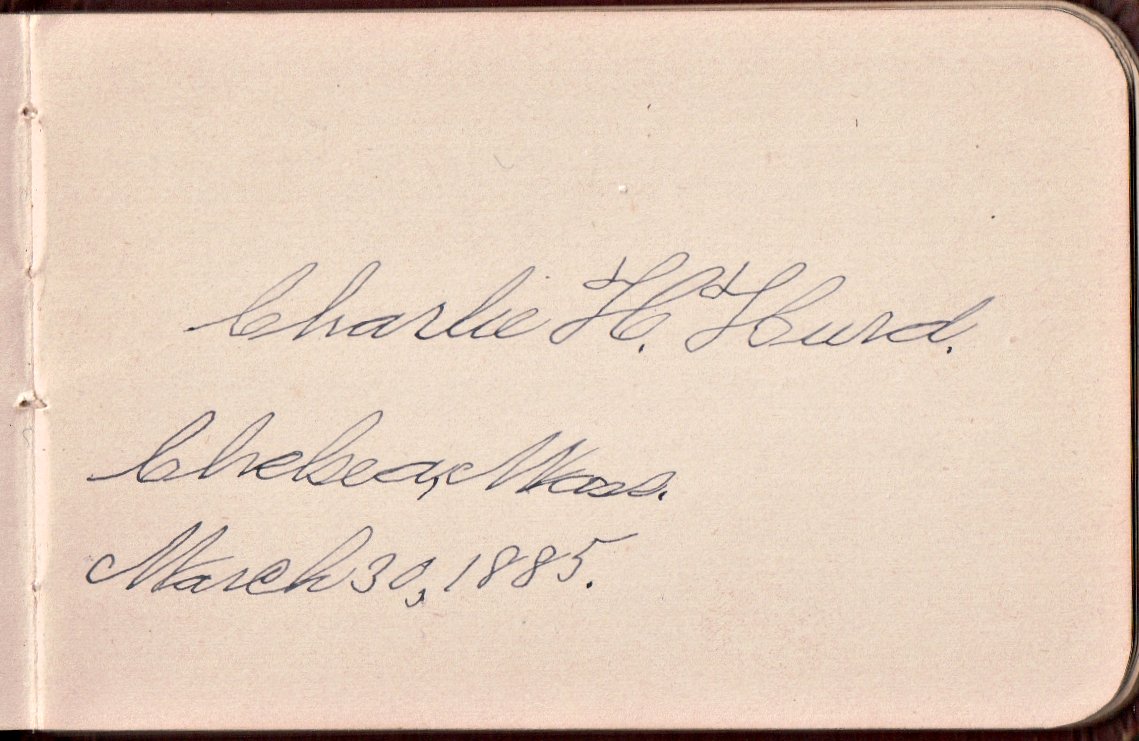 Charlie H. Hurd.
Chelsea, Mass.
March 30, 1885.